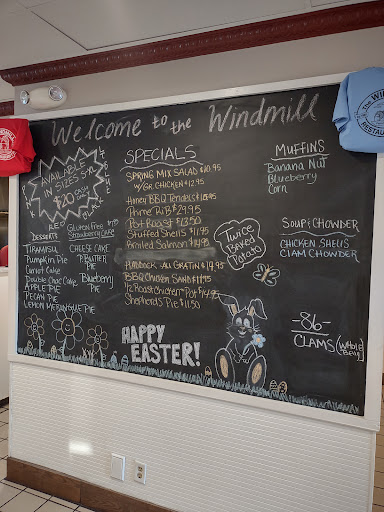 Welcome to the Windmill
AVAILABLE
IN SIZES
$20
DESSERTS
TIRAMISU
Pumpkin Pie
Carrot Cake
Double Choc Cake
APPLE Pie
PECAN PIE
LEMON MERINGUE PIE
Gluten Free
CHEESE CAKE
P. BUTTER
PIE
Blueberry
Pie
SPECIALS
SPRING MIX SALAD $10.95
W/GR. CHICKEN $12.95
Honey BBQ Tenders $15.95
Prime Rib $29.95
Pot Roast $13.50
Stuffed Shells $11.95
Broiled Salmon $14.95
HADDOCK AU GRATIN $14.95
BBQ CHICKEN SAND $11.95
1/2 Roast Chicken Pot $14.95
Shepherds Pie $11.50
Twice
Baked
Potato
HAPPY
EASTER!
MUFFINS
Banana Nut
Blueberry
Corn
SOUP & CHOWDER
CHICKEN SHELLS
CLAM CHOWDER
-86-
CLAMS (Whole
Belly)
The WIND
RESTAURA